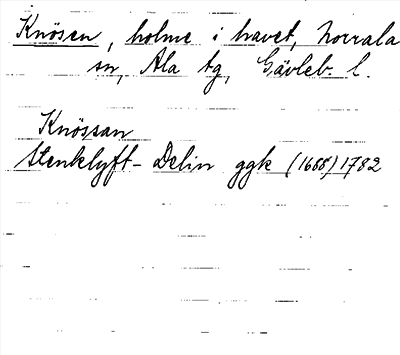 Knösen, holme i havet, Norrala
sn, Ala tg, Gävleb. l.
Knössan
Stenklyft-Delin ggk (1688) 1782